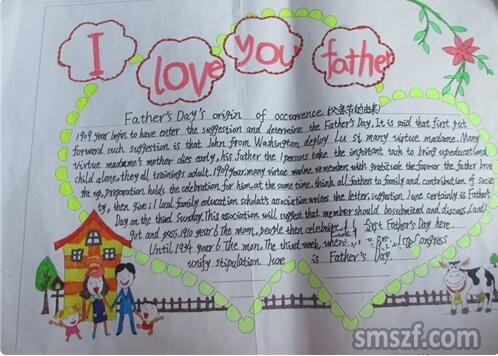 I love you father
Father's Day's origin of occurrence (父亲节的由来)
1909 year begin to have enter the suggestion and determine the Father's Day. It is said that first put
forward such suggestion is that John from Washington, deploy Lu si many virtue madame. Many
virtue madame's mother dies early, his father the 1 persons take the important task to bring up educational
child alone, they all trainings adult. 1909 year many virtue madame remembers with gratitude the forever the father bred
the up, preparation holds the celebration for him, at the same time, think all fathers to family and contribution of socie
ty, then give it local family education scholar's association writes the letter, suggestion June certainly is Father's
Day on the third Sunday. This association will suggest that member should be submitted and discuss, and
got and pass. 1910 year 6 The mon, people then celebrate first Father's Day here.
Until 1934 year 6 The mon, The third week, where Congress
unify stipulation June is Father's Day.
smszf.com